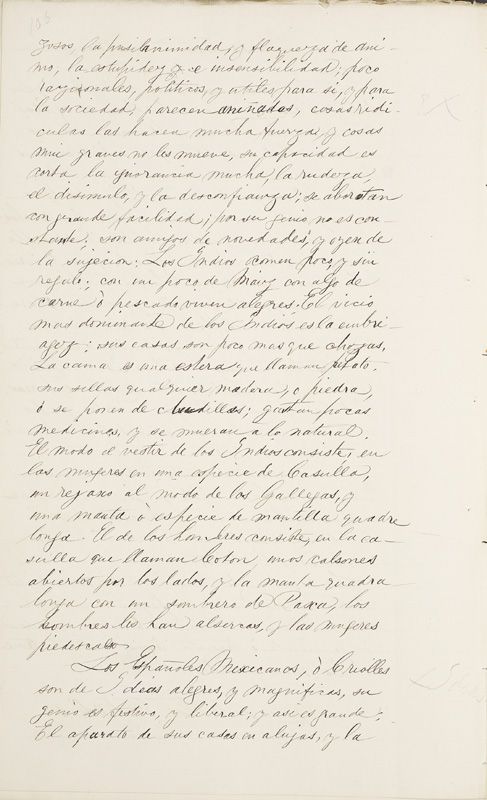 103
zosos, la pusilanimidad, y flaqueza de ani-
mo, la estupidez, e insensibilidad; poco
racionales, politicos, y utiles para si, y para
la sociedad, parecen aniñados, cosas ridi-
culas las hacen mucha fuerza, y cosas
mui graves no les mueve, su capacidad es
corta la ygnorancia mucha, la rudeza,
el disimulo, y la desconfianza; se aborotan
con grande facilidad; por su genio no es con-
stante: son amigos de novedades, y oyen de
la sujecion: Los Indios comen poco y sin
regalo: con un poco de Maiz con algo de
carne ò pescado viven alegres. El vicio
mas dominante de los Indios es la embri-
agez: sus casas son poco mas que chozas,
La cama es una estera que llaman petate:
sus sillas qualquier madera, o piedra,
ò se ponen de cludillas; gastan pocas
medicinas, y se mueran a lo natural.
El modo e vestir de los Indios consiste, en
las mugeres en una especie de Casulla,
un regaxo al modo de los Gallegas, y
una manta ò especie de mantilla quadre
longa. El de los hombres consiste, en la ca-
sulla que llaman Coton, unos calsones
abiertos por los lados, y la manta quadra
longa con un sombrero de Paxa, los
hombres les han alsercas, y las mugeres
piedescalso
Los Españoles Mexicanos, ò Criolles
son de Ideas alegres, y magnificas, su
genio es festivo, y liberal; y asi es grande;
El aparato de sus casas en alujas, y la